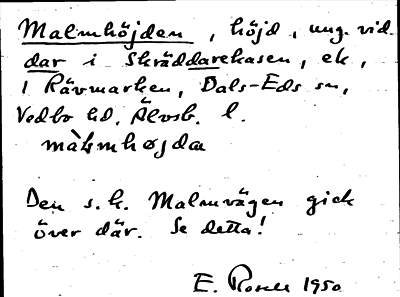 Malmhöjden, höjd, ung. vid.
dar i Skräddarekasen, ek,
1 Rävmarken, Dals-Eds sn,
Vedbo hd, Älvsb. l.
màlmhøjda
Den s.k. Malmvägen gick
över där. Se detta!
E. Rosell 1950